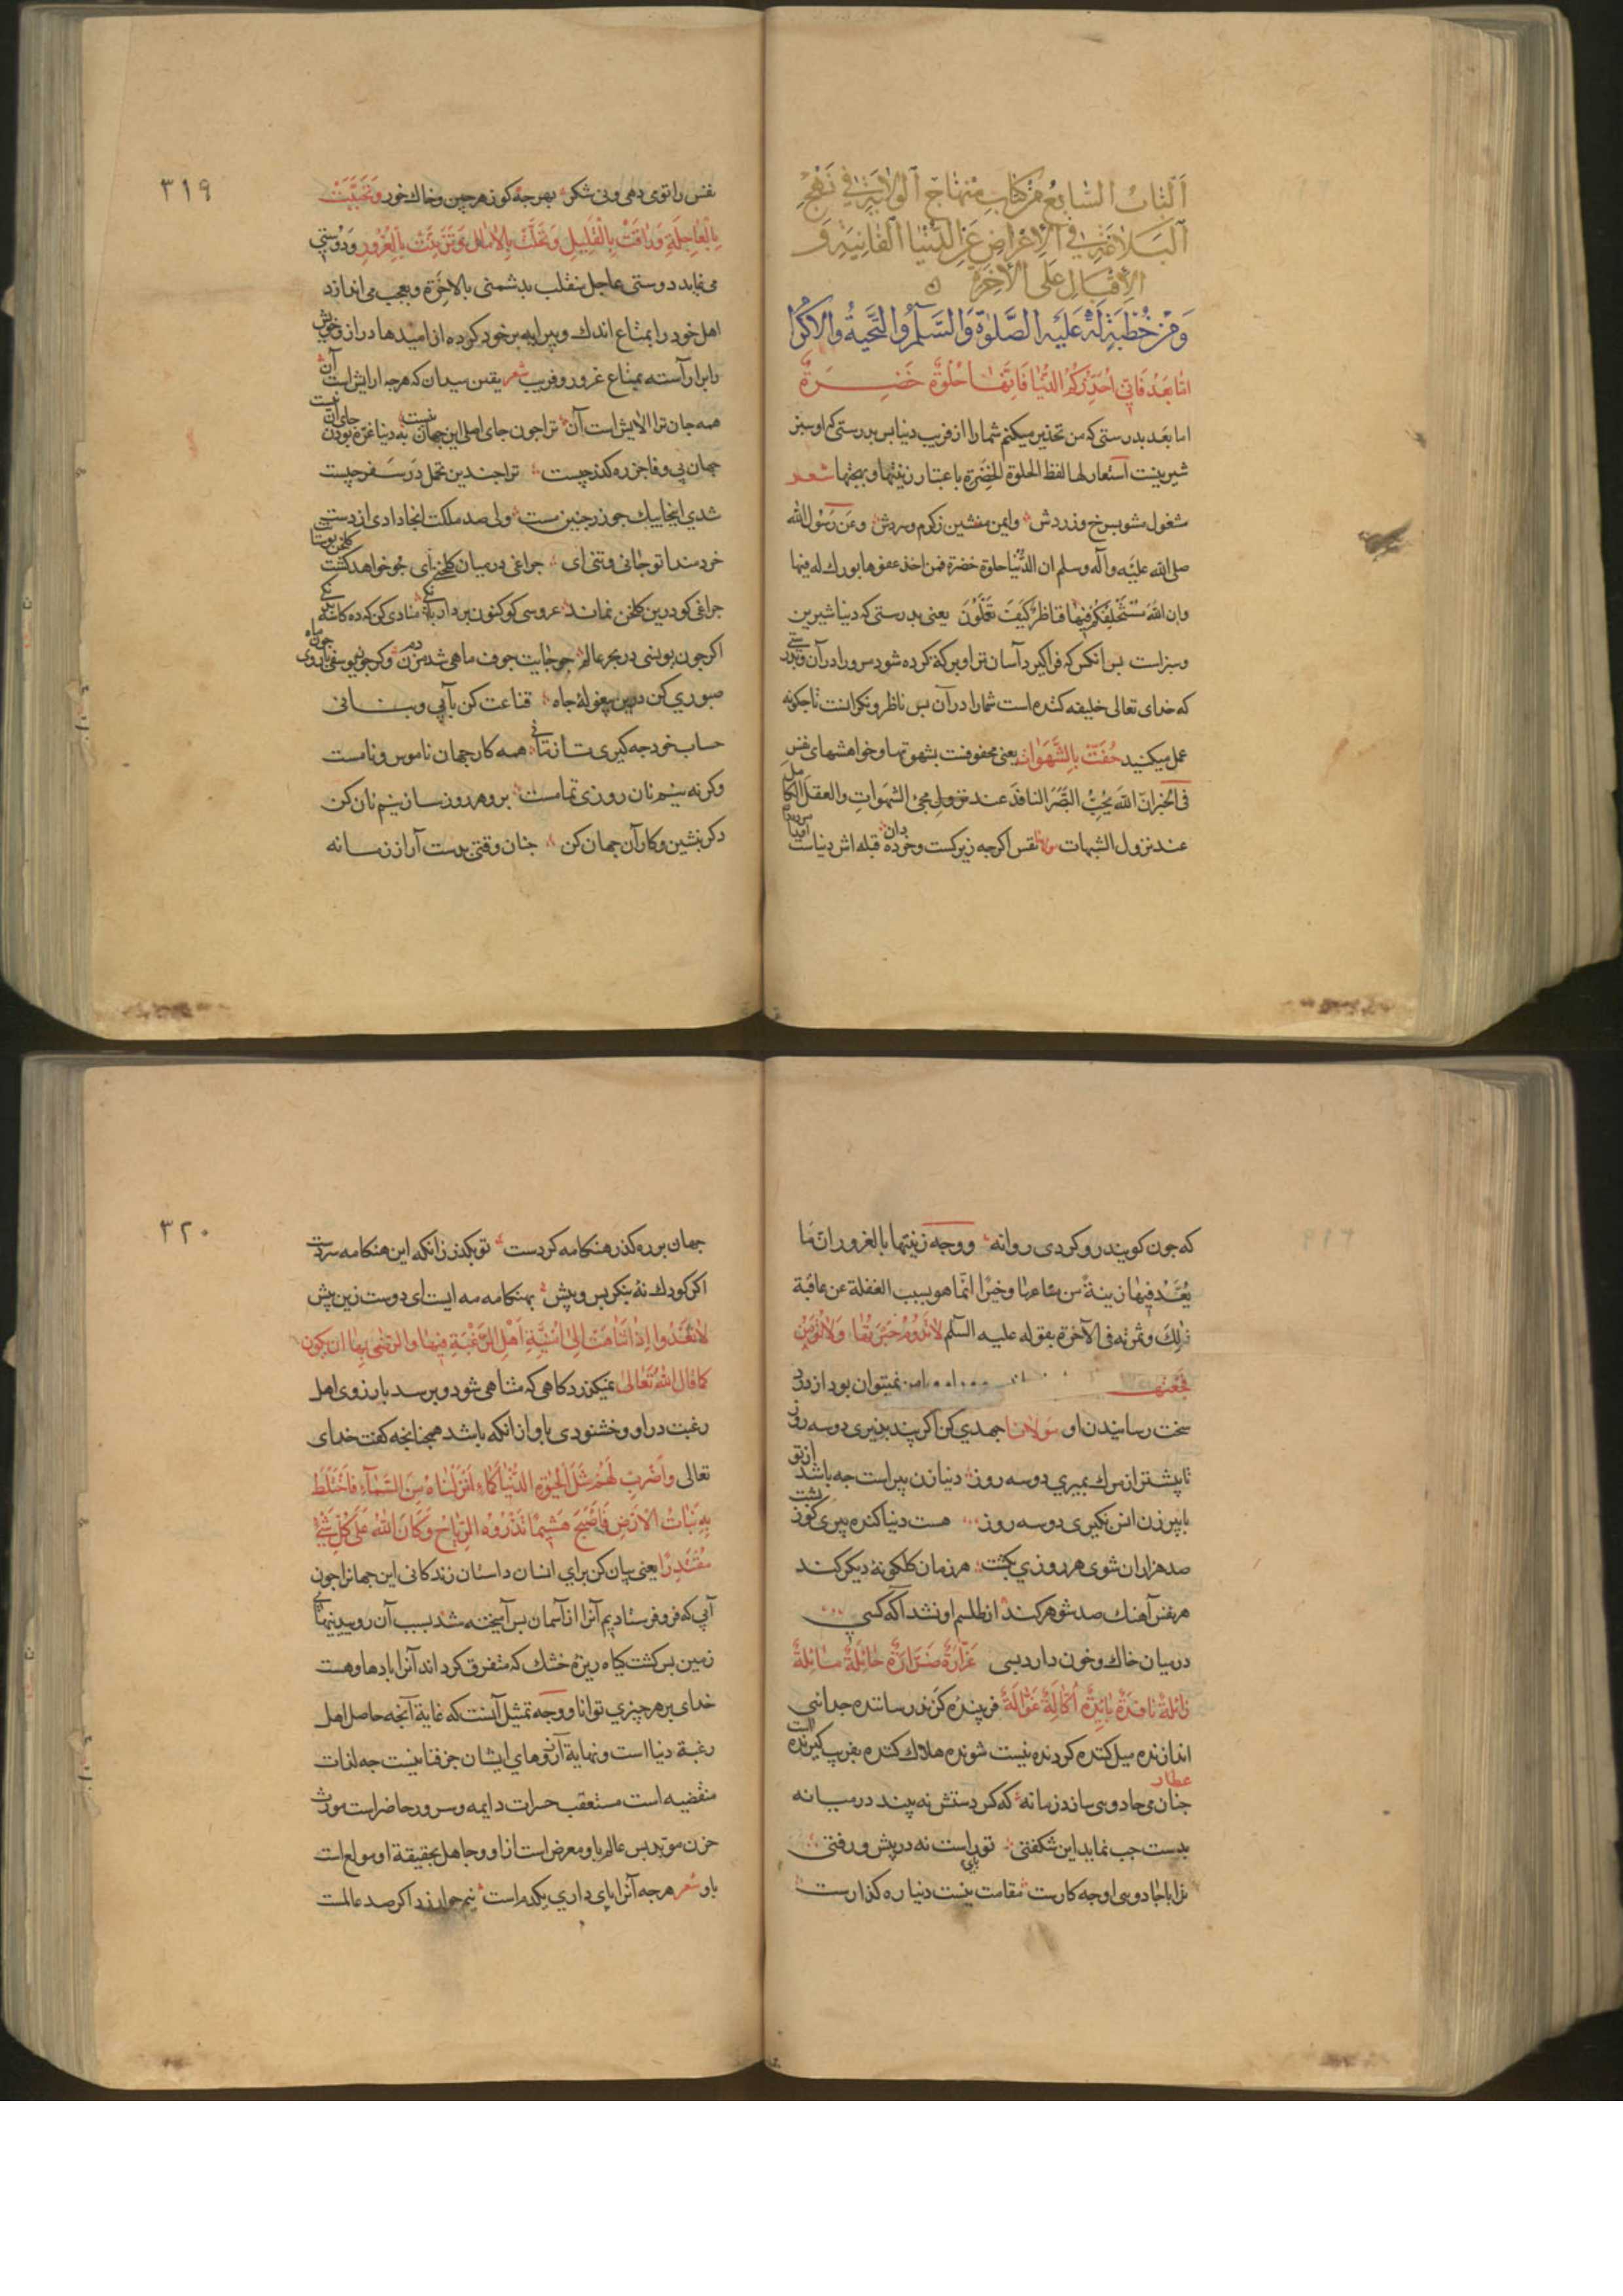 اَلْبَابُ السَّابِعُ مِنْ كِتَابِ مِنْهَاجِ الْوِلَايَةِ فِي نَهْجِ
اَلْبَلَاغَةِ فِي الْاِعْرَاضِ عَنِ الدُّنْيَا الْفَانِيَةِ وَ
الْاِقْبَالِ عَلَى الْاٰخِرَةِ
وَمِنْ خُطْبَةٍ لَهُ عَلَيْهِ الصَّلٰوةُ وَالسَّلٰمُ وَالتَّحِيَّةُ وَالْاِكْرَا
اَمَّا بَعْدُ فَاِنِّي اُحَذِّرُكُمُ الدُّنْيَا فَاِنَّهَا حُلْوَةٌ خَضِرَةٌ
اما بعد بدرستی که من تحذیر میکنم شما را از فریب دنیا بس بدرستی که او سبز
شیرینست استعار لها لفظ الحلوة الخضرة باعتبار زینتها وبهجتها شعر
مشغول مشو بسرخ و زردش وایمن منشین زکرم و سردش وعن رسول الله
صلی الله علیه وآله وسلم ان الدنیا حلوة خضرة فمن اخذ عفوها بورك له فیها
وان الله مستخلفکم فیها فناظر کیف تعملون یعنی بدرستی که دنیا شیرین
وسبز است بس انکس که فراکیرد آسان تر او برکة کرده شود مر او را در آن وبدرستی
که خدای تعالی خلیفه کننده است شما را در آن بس ناظر ونکرانست تا جکونه
عمل میکنید حُفَّتْ بِالشَّهَوَاتِ یعنی محفوفست بشهوتها وخواهشهای نفس
فی الخبر ان الله یحب البصر النافذ عند نزول مجئ الشهوات والعقل الکامل
عند نزول الشبهات مولانا نفس اکرجه زیرکست وخرده دان قبله اش دنیاست
٣١٩
نفس را تو وی دهی ونی شکر بهر جه کو زهر جین وخاك خور وَتَحَبَّبَتْ
بِالْعَاجِلَةِ وَرَاقَتْ بِالْقَلِيلِ وَتَحَلَّتْ بِالْاٰمَالِ وَتَزَيَّنَتْ بِالْغُرُورِ ودوستی
می نماید دوستی عاجل منقلب بدشمنی بالاخرة وبعجب می اندازد
اهل خود را بمتاع اندك وپیرایه بر خود کرده از امیدها دراز وخویش
را برآراسته بمتاع غرور وفریب شعر یقین میدان که هرجه آرایش است آن
همه جان ترا الایش است آن تراجون جای اصلی این جهان نیست به دنیا غره بودن جای آن نیست
جهان بی وفا جز ره کذر جیست ترا جندین تحمل در سفر جیست
شدی اینجا بیك جو زر جنین مست ولی صد ملکت آنجا دادی از دست
خردمندا تو جانی وتنی ای جراغی در میان کلخنی ای جو خواهد کشت کلخن بوستانی
جراغی کو درین کلخن نماند عروسی کو کنون بر داد منادی کن که ده کانکی
اکر جون یونسی در بحر عالم جو جایت جوف ماهی شد مزن دم وکر جون یوسفی روی جون ماه
صبوری کن درین بیغولهٔ جاه قناعت کن بآبی وبنانی
حساب خود جه کیری تا زنانی همه کار جهان ناموس ونامست
وکرنه نیم نان روزی تمامست برو هر روز ساز نیم نان کن
دکر بنشین وکار آن جهان کن جنان وقتی بدست آر از زمانه
که جون کویند رو کردی روانه ووجه زینتها بالغرور ان ما
یُعَدُّ فیها زینةً من متاعها وخیرًا انما هو بسبب الغفلة عن عاقبة
ذلك وثمرته فی الآخرة بقوله علیه السلم لَا تَدُومُ حَبْرَتُهَا وَلَا تُؤْمَنُ
فَجْعَتُهَا نمیتوان بود از درد
سخت رسانیدن او مَوْلَانَا جهدی کن اکر پند پذیری دو سه روز
تا پیشتر از مرك بمیری دو سه روز دنیا زن پیر است جه باشد ار تو
با پیر زن انس نکیری دو سه روز هست دنیا کنده پیری کوز پشت
صد هزاران شوی هر روزی بکشت هر زمان کلکونهٔ دیکر کند
هر نفس آهنك صد شوهر کند از طلسم او نشد آکه کسی
درمیان خاك وخون دارد بسی غَرَّارَةٌ ضَرَّارَةٌ حَائِلَةٌ
زَائِلَةٌ نَافِدَةٌ بَائِدَةٌ اَكَّالَةٌ غَوَّالَةٌ فریبنده کزند رساننده جدائی
اندازنده میل کننده کردنده نیست شونده هلاك کننده بفریب کیرنده است
عطار
جنان می جادوی سازد زمانه که کر دستش نه بیند درمیانه
بدست جب نماید این شکفتی تو راست نه در پیش ورفتی
ترا با جادوی او جه کارست مقامت نیست دنیا ره کذارست
٣٢٠
جهان بر ره کذر هنکامه کردست تو بکذر زانکه این هنکامه سردست
اکر کودك نهٔ بنکر بس وپیش بهنکامه مه ایست ای دوست زین بیش
لَا تَعْدُوا اِذَا تَنَاهَتْ اِلٰى اُمْنِيَّةِ اَهْلِ الرَّغْبَةِ فِيهَا والرضی بها ان یکون
كَمَا قَالَ اللهُ تَعَالٰى نمیکذرد کاهی که متناهی شود وبرسد بارزوی اهل
رغبت در او وخشنودی باو از انکه باشد همجنانجه کفت خدای
تعالی وَاضْرِبْ لَهُمْ مَثَلَ الْحَيٰوةِ الدُّنْيَا كَمَاءٍ اَنْزَلْنَاهُ مِنَ السَّمَآءِ فَاخْتَلَطَ
بِهٖ نَبَاتُ الْاَرْضِ فَاَصْبَحَ هَشِيمًا تَذْرُوهُ الرِّيَاحُ وَكَانَ اللهُ عَلٰى كُلِّ شَيْءٍ
مُقْتَدِرًا یعنی بیان کن برای انسان داستان زندکانی این جهان را جون
آبی که فرو فرستادیم آنرا از آسمان بس آمیخته شد بسبب آن روییدنیهای
زمین بس کشت کیاه ریزه خشك که متفرق کرداند آنرا بادها وهست
خدای بر هر جیزی توانا ووجه تمثیل آنست که غایة آنجه حاصل اهل
رغبة دنیا است ونهایة آرزوهای ایشان جز فنا نیست جه لذات
منقضیه است مستعقب حسرات دایمه وسرور حاضر است مورث
حزن موبد بس عالم باو معرض است از او وجاهل بحقیقة او مولع است
باو شعر هرجه آنرا پای داری یکدم است نیم جو ارزد اکر صد عالمست